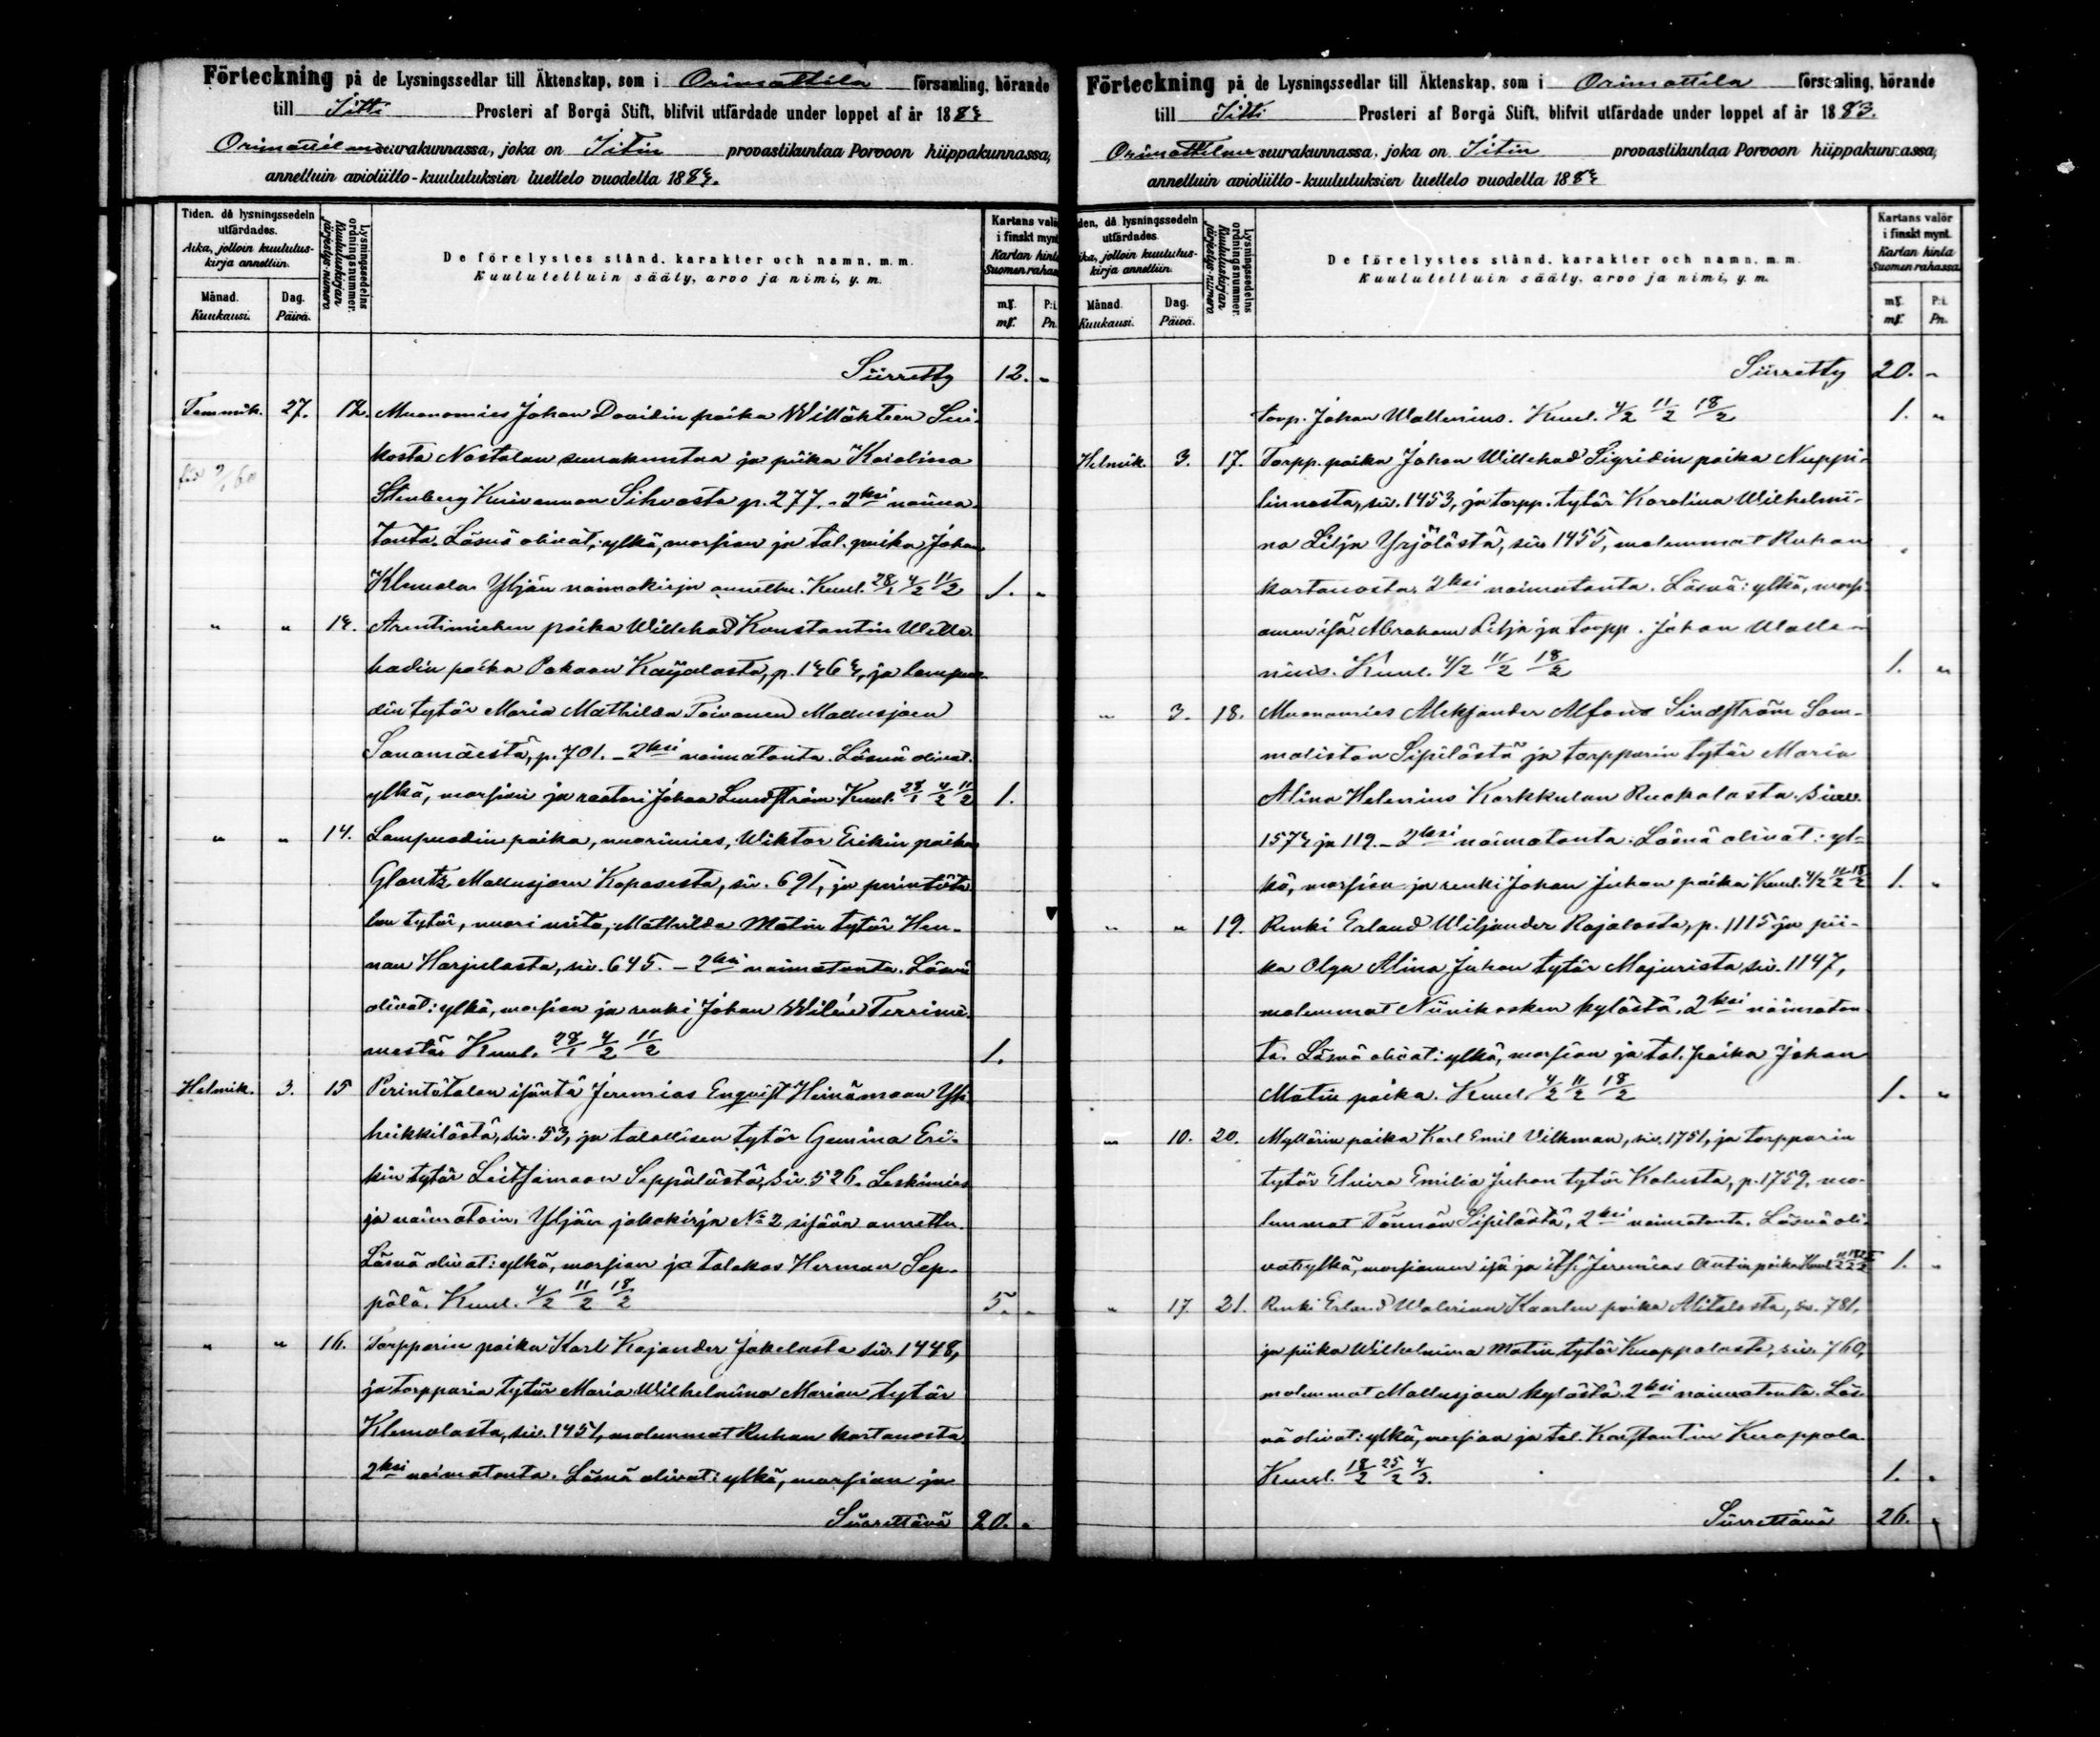 Förteckning på de Lysningssedlar till Äktenskap, som i Orimattila församling, hörande
till Iitti Prosteri af Borgå Stift, blifvit utfärdade under loppet af år 1883
Orimattilan seurakunnassa, joka on Iitin provastikuntaa Porvoon hiippakunnassa,
annettuin avioliitto-kuulutuksien luettelo vuodelta 1883.
Tiden, då lysningssedeln utfärdades.
Aika, jolloin kuulutuskirja annettiin.
Månad. Kuukausi.
Dag. Päivä.
Lysningssedelns ordningsnummer.
Kuulutuskirjan järjestys-numero
De förelystes stånd, karakter och namn, m. m.
Kuulutettuin sääty, arvo ja nimi, y. m.
Kartans valör i finskt mynt.
Kartan hinta Suomen rahassa
mf. P:i.
mf. Pn.
Siirretty 12. "
Tammik. 27. 12. Muonamies Johan Davidin poika Willähteen Sui-
kosta Nastolan seurakuntaa ja piika Karolina
Stenberg Kuivannon Sihvosta p. 277. - 2ksi naima-
tonta. Läsnä olivat: ylkä, morsian ja tal. poika Johan
Klemola. Yljän naimakirja annettu. Kuul. 28/1 4/2 11/2 1. "
" " 13. Arentimiehen poika Willehad Konstantin Wille-
hadin poika Pakaan Kaijalasta, p. 1363, ja lampuo-
din tytär Maria Mathilda Toivonen Mallusjoen
Sanamäestä, p. 701. - 2ksi naimatonta. Läsnä olivat:
ylkä, morsian ja raatari Johan Lundström. Kuul. 28/1 4/2 11/2 1.
" " 14. Lampuodin poika, nuorimies, Wiktor Erikin poika
Glantz Mallusjoen Kopasesta, siv. 691, ja perintöta-
lon tytär, nuori neito, Mathilda Matin tytär Hen-
nan Harjulasta, siv. 645. - 2ksi naimatonta. Läsnä
olivat: ylkä, morsian ja renki Johan Wilén Terrinie-
mestä. Kuul. 28/1 4/2 11/2 1.
Helmik. 3. 15 Perintötalon isäntä Jeremias Enqvist Heinämaan Yli-
heikkilästä, siv. 53, ja talollisen tytär Gemina Eri-
kin tytär Leitsamaan Seppälästä, siv. 526. Leskimies
ja naimatoin. Yljän jakokirja No 2 sisään annettu.
Läsnä olivat: ylkä, morsian ja talokas Herman Sep-
pälä. Kuul. 4/2 11/2 18/2 5. "
" " 16. Torpparin poika Karl Kajander Jakelasta siv. 1448,
ja torpparin tytär Maria Wilhelmina Marian tytär
Klemolasta, siv. 1451, molemmat Ruhan kartanosta
2ksi naimatonta. Läsnä olivat: ylkä, morsian ja
Siirrettävä 20. "
Förteckning på de Lysningssedlar till Äktenskap, som i Orimattila församling, hörande
till Iitti Prosteri af Borgå Stift, blifvit utfärdade under loppet af år 1883.
Orimattilan seurakunnassa, joka on Iitin provastikuntaa Porvoon hiippakunnassa,
annettuin avioliitto-kuulutuksien luettelo vuodelta 1883
Tiden, då lysningssedeln utfärdades.
Aika, jolloin kuulutuskirja annettiin.
Månad. Kuukausi.
Dag. Päivä.
Lysningssedelns ordningsnummer.
Kuulutuskirjan järjestys-numero
De förelystes stånd, karakter och namn, m. m.
Kuulutettuin sääty, arvo ja nimi, y. m.
Kartans valör i finskt mynt.
Kartan hinta Suomen rahassa
mf. P:i.
mf. Pn.
Siirretty 20. "
torp. Johan Wallenius. Kuul. 4/2 11/2 18/2 1. "
Helmik. 3. 17. Torpp. poika Johan Willehad Sigridin poika Nuppi-
linnasta, siv. 1453, ja torpp. tytär Karolina Wilhelmi-
na Lilja Yrjölästä, siv. 1455, molemmat Ruhan
kartanosta. 2ksi naimatonta. Läsnä: ylkä, morsi-
amen isä Abraham Lilja ja torpp. Johan Walle-
nius. Kuul. 4/2 11/2 18/2 1. "
" 3. 18. Muonamies Aleksander Alfons Lindström Sam-
maliston Sipilästä ja torpparin tytär Maria
Alina Helenius Karkkulan Ruokolasta. Sivu.
1573 ja 119. - 2ksi naimatonta. Läsnä olivat: yl-
kä, morsian ja renki Johan Juhan poika Kuul. 4/2 11/2 18/2 1. "
" " 19. Renki Erland Wiljander Rajalasta, p. 1115 ja pii-
ka Olga Alina Juhan tytär Majurista siv. 1147,
molemmat Niinikosken kylästä. 2ksi naimaton-
ta. Läsnä olivat: ylkä, morsian ja tal. poika Johan
Matin poika. Kuul. 4/2 11/2 18/2 1. "
" 10. 20. Myllärin poika Karl Emil Vilkman, siv. 1751, ja torpparin
tytär Elvira Emilia Juhan tytär Kalusta, p. 1759, mo-
lemmat Tönnön Sipilästä, 2ksi naimatonta. Läsnä oli-
vat: ylkä, morsiamen isä ja its. Jeremias Antin poika Kuul. 11/2 18/2 25/2 1. "
" 17 21. Renki Erland Walerian Kaarlen poika Alitalosta, siv. 781,
ja piika Wilhelmina Matin tytär Knappalasta, siv. 760,
molemmat Mallusjoen kylästä. 2ksi naimatonta. Läs-
nä olivat: ylkä, morsian ja tal. Konstantin Knappala.
Kuul. 18/2 25/2 4/3. 1. "
Siirrettävä 26. "